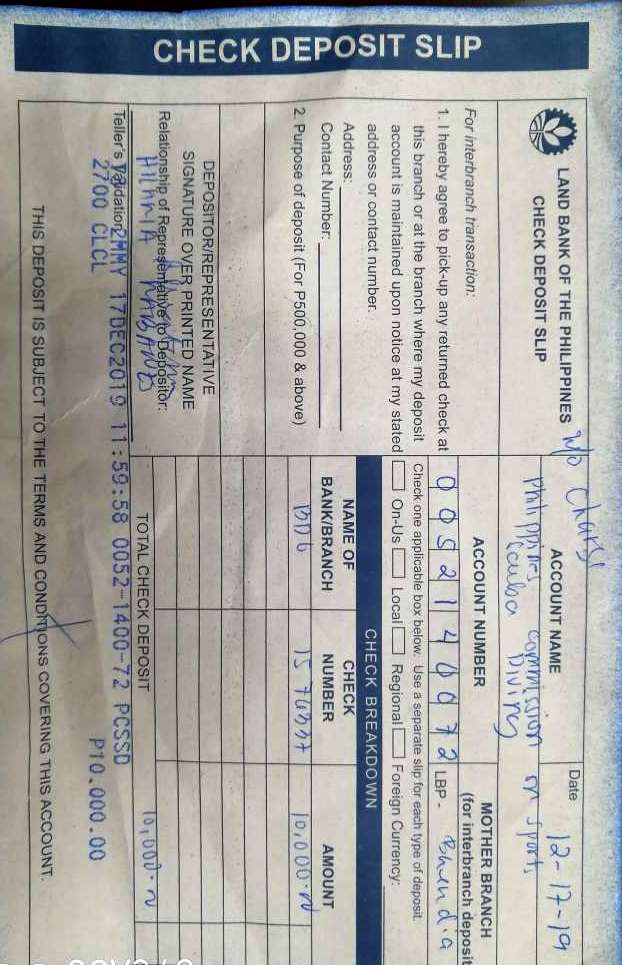 CHECK DEPOSIT SLIP
LAND BANK OF THE PHILIPPINES
CHECK DEPOSIT SLIP
ACCOUNT NAME
Philippines Commission on Sports
Scuba Diving
Date 12-17-19
For interbranch transaction:
1. I hereby agree to pick-up any returned check at
this branch or at the branch where my deposit
account is maintained upon notice at my stated
address or contact number.
Address:
Contact Number:
2. Purpose of deposit (For P500,000 & above)
ACCOUNT NUMBER
0052140072
MOTHER BRANCH
(for interbranch deposit
LBP -
Check one applicable box below. Use a separate slip for each type of deposit.
On-Us Local Regional Foreign Currency:
CHECK BREAKDOWN
NAME OF
BANK/BRANCH
CHECK
NUMBER
AMOUNT
BDO
10,000.00
DEPOSITOR/REPRESENTATIVE
SIGNATURE OVER PRINTED NAME
Relationship of Representative to Depositor:
TOTAL CHECK DEPOSIT
10,000.00
Teller's Validation
2MMY 17DEC2019 11:59:58 0052-1400-72 PCSSD
2700 CLCL P10,000.00
THIS DEPOSIT IS SUBJECT TO THE TERMS AND CONDITIONS COVERING THIS ACCOUNT.